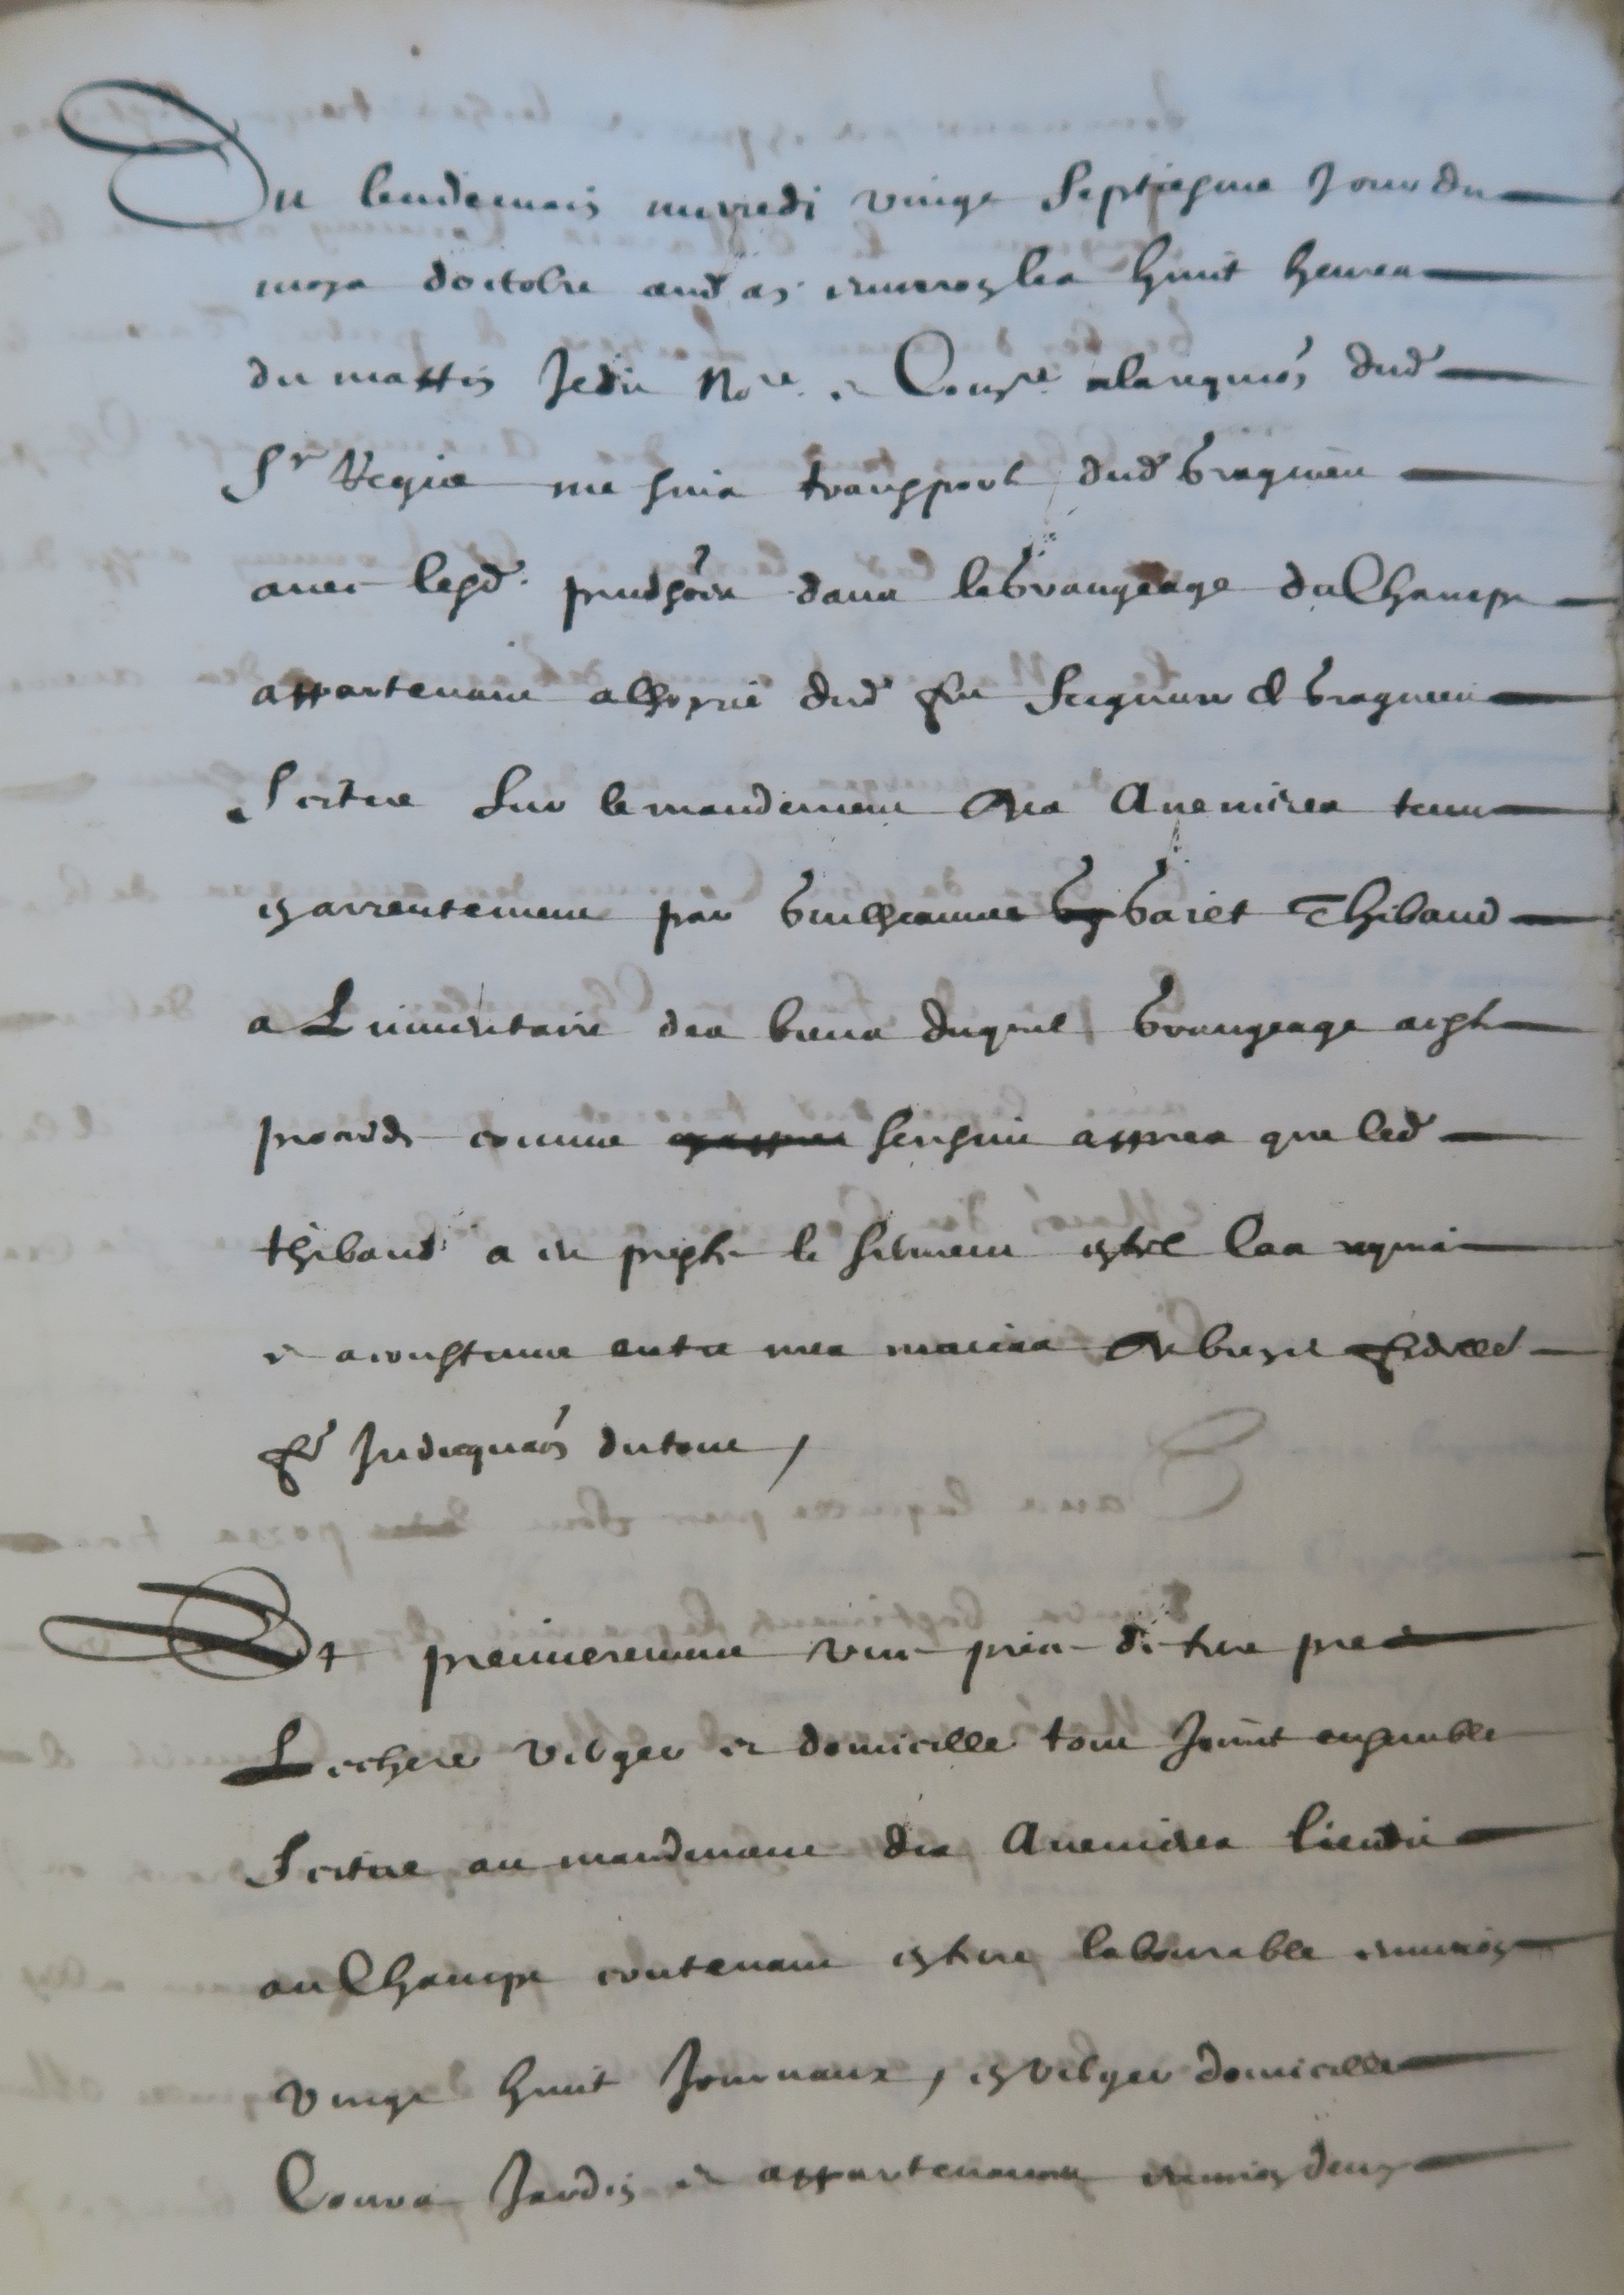 Du lendemain mcredi vingt septiesme Jour du
moys doctobre aud an environ les huit heures
du mattin Je dit Nore et Comre a la requion dud
Sr Regis me suis transporté dud Gragnieu
avec lesd prudhoes dans le Grangeage du Champt
appartenant a lhoyrie dud feu Seigneur de Gragnieu
Scitue Sur le mandement des Avenieres tenu
en arrentement par Guilheaume Gariet Thibaud
a Linventaire des biens duquel Grangeage ay este
procedé comme sensuit appres que led
thibaud a eu presté le serment en tel cas requis
et acoustumé entre mes mains de bonne et fidelle
Judicquaon du tout /
Et premierement une piece de terre pred
Lechere verger et domicille tout Joinct ensemble
Scitue au mandement des Avenieres lieu dit
au Champt contenant en terre labourable environ
vingt huit Journaux / en verger domicille
Court Jardin et appartenances environ deux